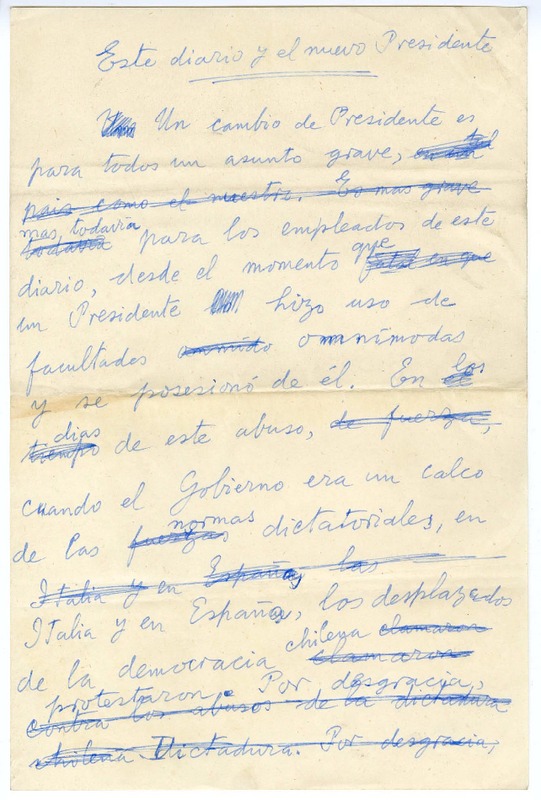 Este diario y el nuevo Presidente
Un cambio de Presidente es
para todos un asunto grave,
pais como el nuestro. Es mas grave
mas, todavía
todavía para los empleados de este
diario, desde el momento que
un Presidente hizo uso de
facultades omnímodas
y se posesionó de él. En los
dias
tiempo de este abuso, de fuerza,
cuando el Gobierno era un calco
normas
de las fuerzas dictatoriales, en
Italia y en España, las
Italia y en España, los desplazados
chilena clamaron
de la democracia clamaron
protestaron. Por desgracia,
contra los abusos de la dictadura
chilena Dictadura. Por desgracia,